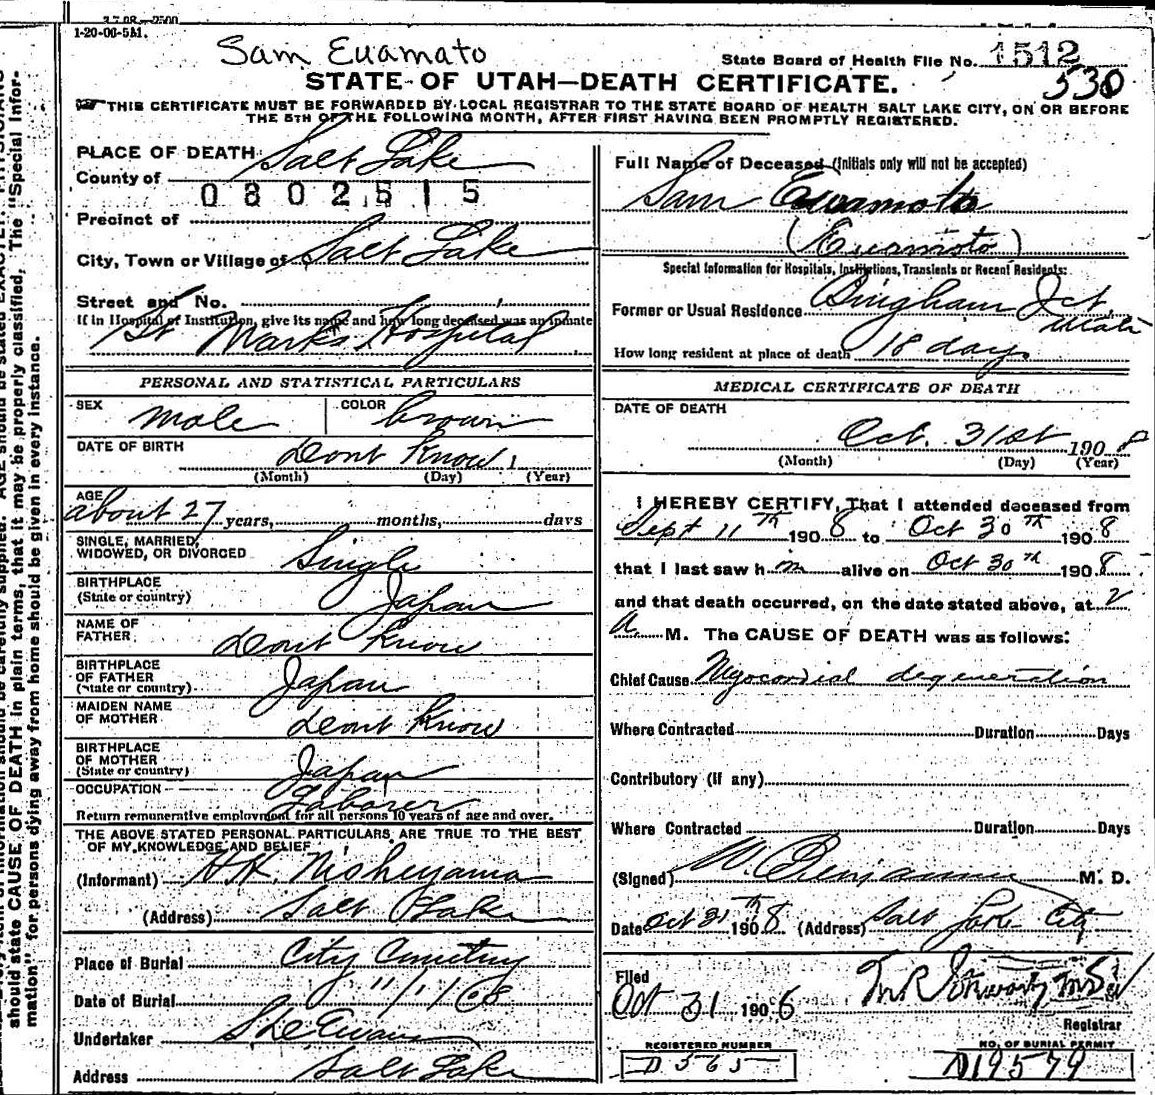 1-20-00-5M.
Sam Euamato
State Board of Health File No. 1512
530
STATE OF UTAH—DEATH CERTIFICATE.
THIS CERTIFICATE MUST BE FORWARDED BY LOCAL REGISTRAR TO THE STATE BOARD OF HEALTH SALT LAKE CITY, ON OR BEFORE
THE 5TH OF THE FOLLOWING MONTH, AFTER FIRST HAVING BEEN PROMPTLY REGISTERED.
PLACE OF DEATH
County of Salt Lake
0802515
Precinct of
City, Town or Village of Salt Lake
Street and No.
If in Hospital of Institution, give its name and how long deceased was an inmate
St Marks Hospital
PERSONAL AND STATISTICAL PARTICULARS
SEX male COLOR brown
DATE OF BIRTH Dont Know 1
(Month) (Day) (Year)
AGE
about 27 years, months, days
SINGLE, MARRIED,
WIDOWED, OR DIVORCED Single
BIRTHPLACE
(State or country) Japan
NAME OF
FATHER Dont Know
BIRTHPLACE
OF FATHER
(State or country) Japan
MAIDEN NAME
OF MOTHER Dont Know
BIRTHPLACE
OF MOTHER
(State or country) Japan
OCCUPATION Laborer
Return remunerative employment for all persons 10 years of age and over.
THE ABOVE STATED PERSONAL PARTICULARS ARE TRUE TO THE BEST
OF MY KNOWLEDGE AND BELIEF
(Informant) H.H. Nisheyama
(Address) Salt Lake
Place of Burial City Cemetery
Date of Burial 11/1/08
Undertaker S. Evans
Address Salt Lake
Full Name of Deceased (Initials only will not be accepted)
Sam Euamoto
(Euamoto)
Special Information for Hospitals, Institutions, Transients or Recent Residents:
Former or Usual Residence Bingham Jct
Utah
How long resident at place of death 18 days
MEDICAL CERTIFICATE OF DEATH
DATE OF DEATH
Oct. 31st 1908
(Month) (Day) (Year)
I HEREBY CERTIFY, That I attended deceased from
Sept 11th 1908 to Oct 30th 1908
that I last saw h m alive on Oct 30th 1908
and that death occurred, on the date stated above, at 2
a M. The CAUSE OF DEATH was as follows:
Chief Cause Myocardial degeneration
Where Contracted Duration Days
Contributory (if any)
Where Contracted Duration Days
(Signed) W. Benjamin M. D.
Date Oct 31th 1908 (Address) Salt Lake City
Filed
Oct 31 1908
Registrar
REGISTERED NUMBER
D 565
NO. OF BURIAL PERMIT
D19579
should state CAUSE OF DEATH in plain terms, that it may be properly classified. The "Special Infor-
mation" for persons dying away from home should be given in every instance.